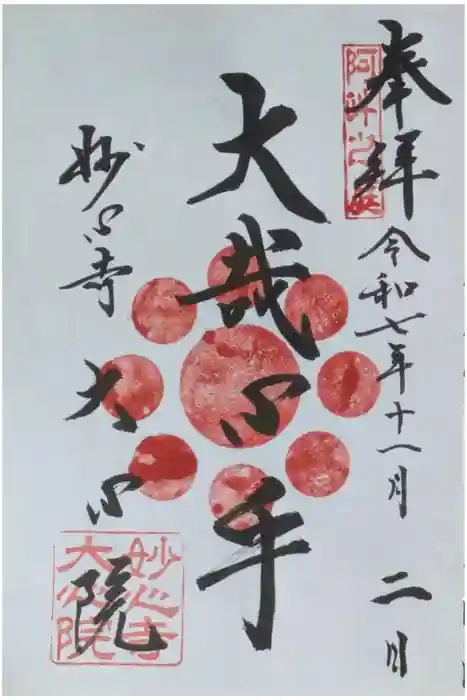 奉拝 令和七年十一月 二日
阿吽之庭
大哉心乎
妙心寺 大心院
妙心寺
大心院